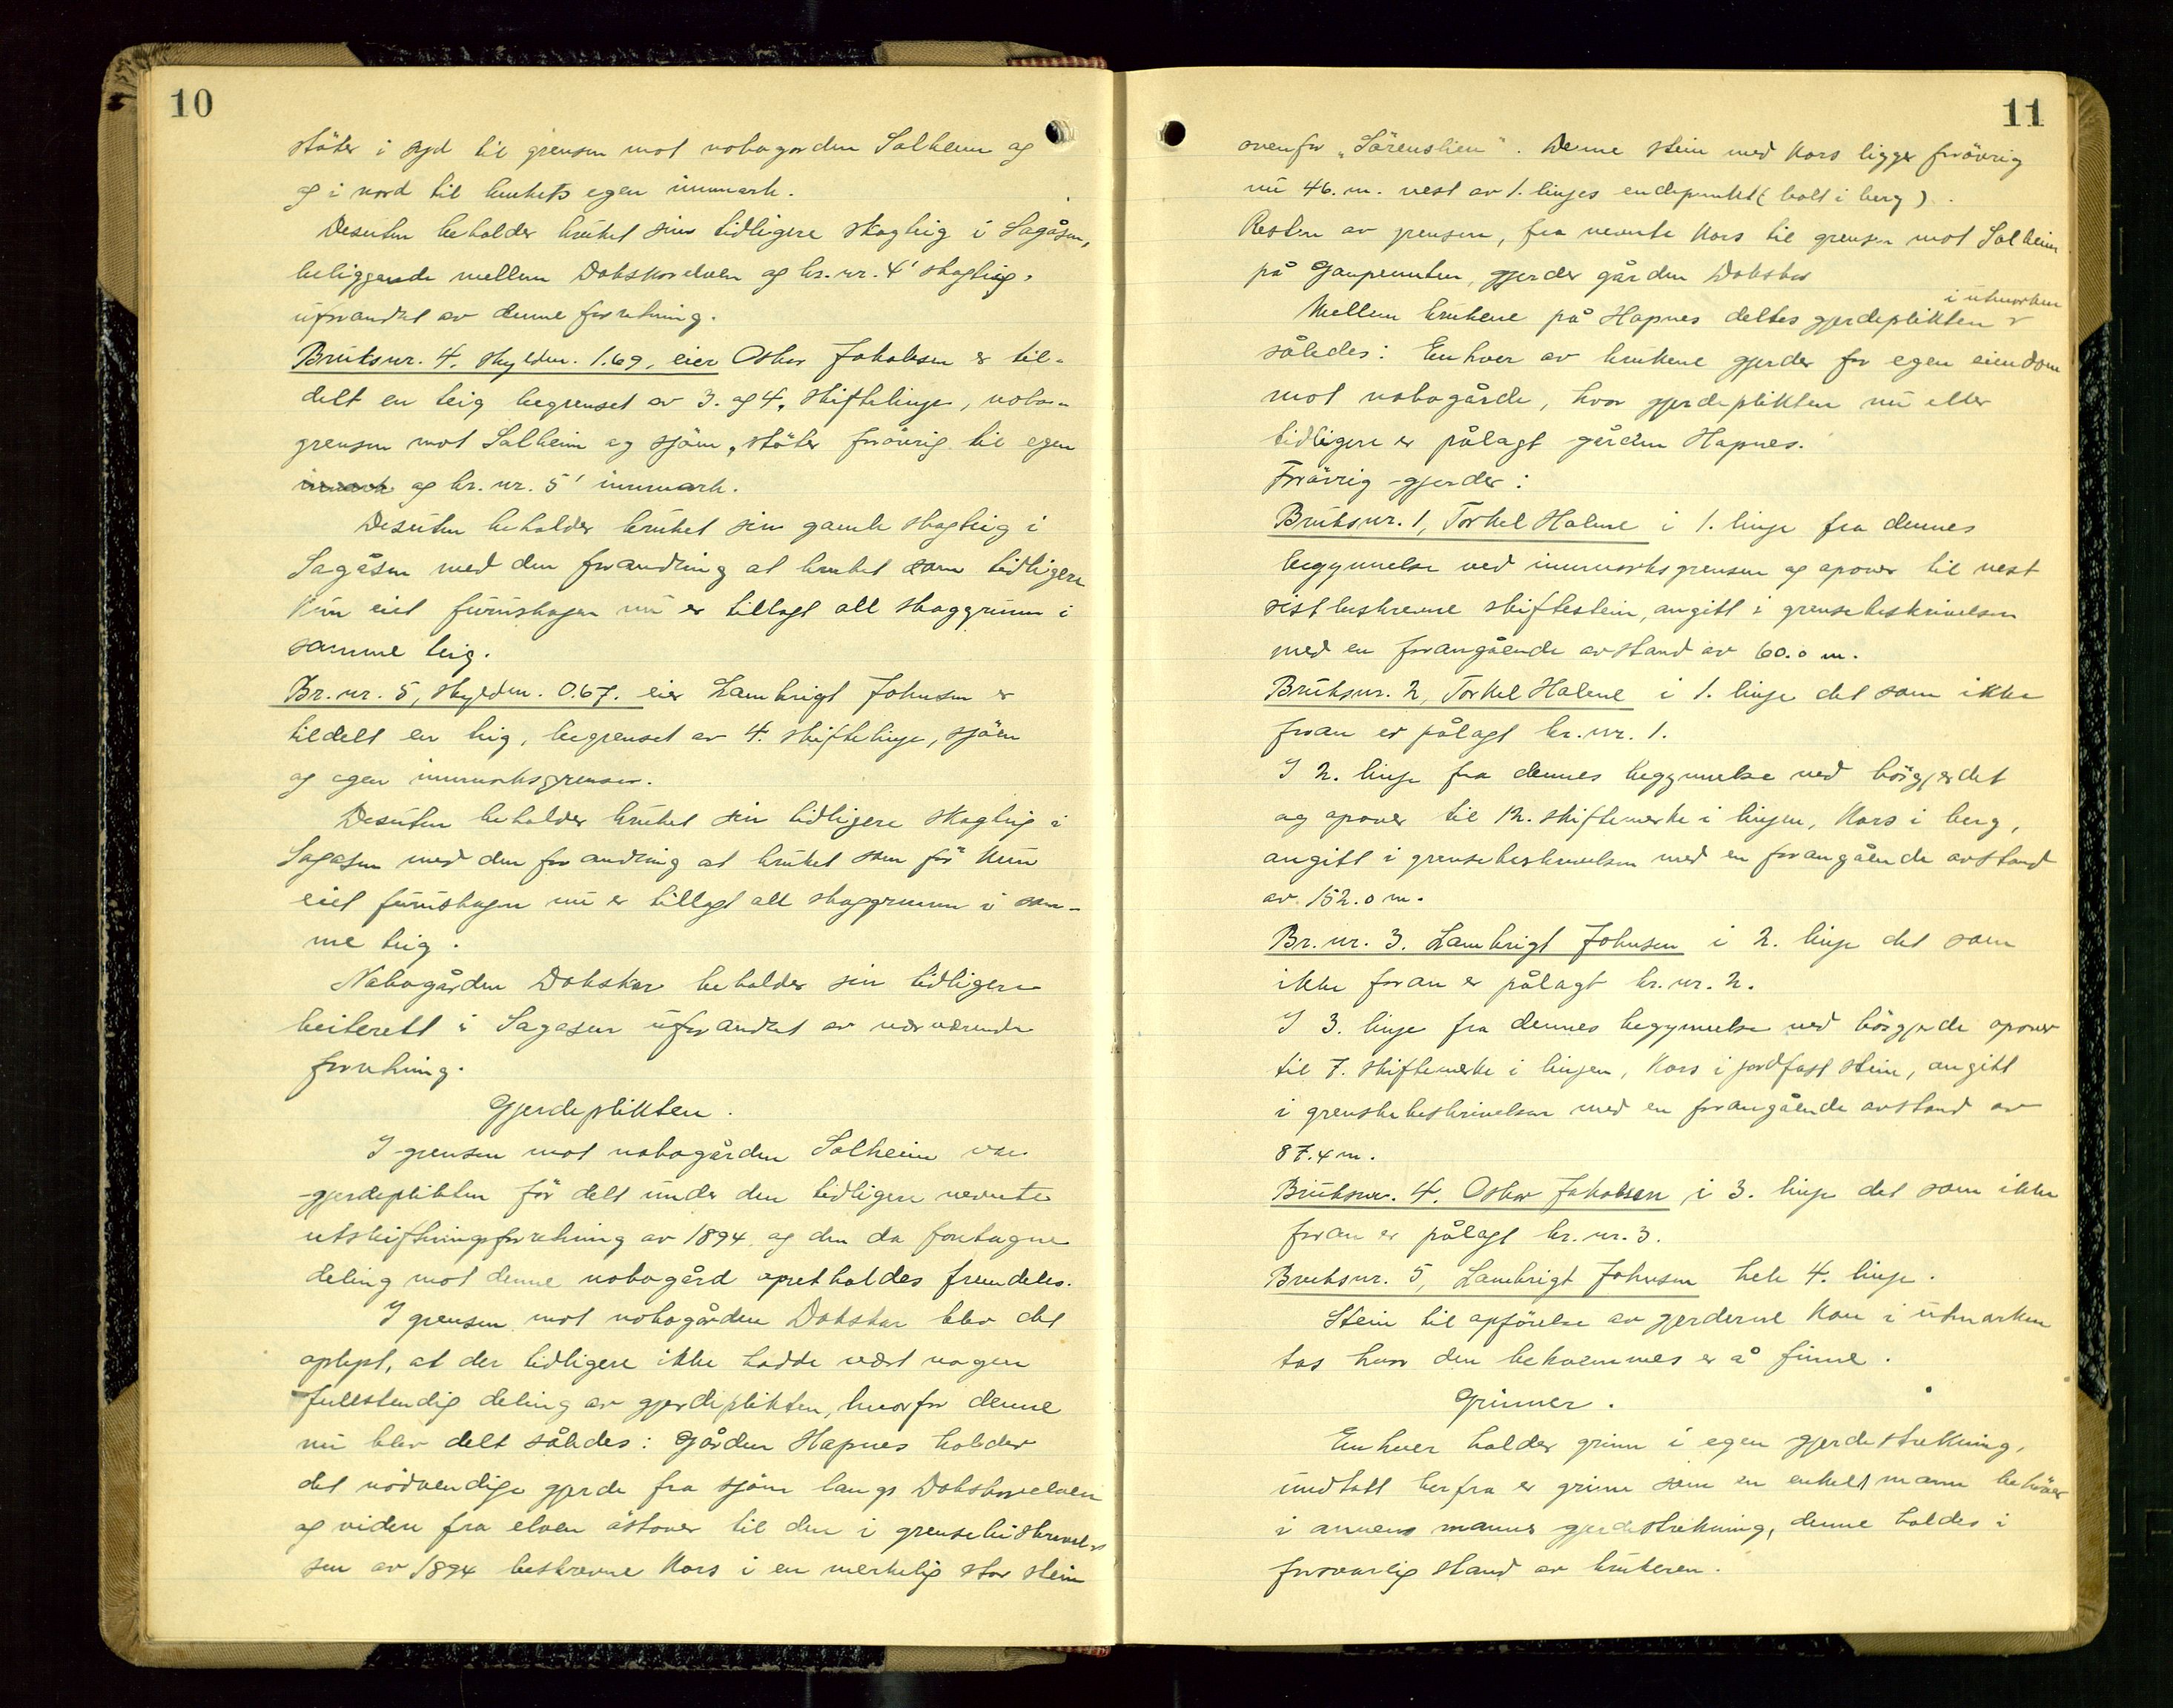 10
støter i syd til grensen mot nabogarden Solheim og
og i nord til brukets egen innmark.
Desuten beholder bruket sin tidligere skogteig i Sagåsen,
beliggende mellem Dokskarelven og br.nr. 4' skogteig,
uforandret av denne forretning.
Bruksnr. 4, skyldm. 1.69, eier Oskar Jakobsen er til-
delt en teig begrenset av 3. og 4. skiftelinje, nabo-
grensen mot Solheim og sjøen, støter forøvrig til egen
innmark og br. nr. 5' innmark.
Desuten beholder bruket sin gamle skogteig i
Sagåsen med den forandring at bruket som tidligere
kun eiet furuskogen nu er tillagt all skoggrunn i
samme teig.
Br. nr. 5, skyldm. 0.67. eier Lambrigt Johnsen er
tildelt en teig, begrenset av 4. skiftelinje, sjøen
og egen innmarksgrense.
Desuten beholder bruket sin tidligere skogteig i
Sagasen med den forandring at bruket som før kun
eiet furuskogen nu er tillagt all skoggrunn i sam-
me teig.
Nabogården Dokskar beholder sin tidligere
beiterett i Sagasen uforandret av nærværende
forretning.
Gjerdeplikten.
I grensen mot nabogården Solheim var
gjerdeplikten før delt under den tidligere nevnte
utskiftningsforretning av 1894 og den da foretagne
deling mot denne nabogård opretholdes fremdeles.
I grensen mot nabogården Dokskar blev det
oplyst, at der tidligere ikke hadde vært nogen
fullstendig deling av gjerdeplikten, hvorfor denne
nu blev delt således: Gården Hapnes holder
det nødvendige gjerde fra sjøen langs Dokskarelven
og videre fra elven østover til den i grensebeskrivel-
sen av 1894 beskrevne kors i en merkelig stor stein
11
ovenfor "Sörenslien". Denne stein med kors ligger forøvrig
nu 46. m. vest av 1. linjes endepunkt (bolt i berg).
Resten av grensen, fra nevnte kors til grensen mot Solheim
på Gaupemuten, gjerder gården Dokskar
i utmarken
Mellem brukene på Hapnes deltes gjerdeplikten
således: Enhver av brukene gjerder for egen eiendom
mot nabogårde, hvor gjerdeplikten nu eller
tidligere er pålagt gården Hapnes.
Forøvrig gjerder:
Bruksnr. 1, Torkel Halme i 1. linje fra dennes
begynnelse ved innmarksgrensen og opover til nest
sist beskrevne skiftestein, angitt i grensebeskrivelsen
med en forangående avstand av 60.0 m.
Bruksnr. 2, Torkel Halme i 1. linje det som ikke
foran er pålagt br. nr. 1.
I 2. linje fra dennes begynnelse ved bøgjerdet
og opover til 12. skiftemerke i linjen, kors i berg,
angitt i grensebeskrivelsen med en forangående avstand
av 152.0 m.
Br. nr. 3. Lambrigt Johnsen i 2. linje det som
ikke foran er pålagt br. nr. 2.
I 3. linje fra dennes begynnelse ved bøgjerde opover
til 7. skiftemerke i linjen, kors i jordfast stein, angitt
i grenskebeskrivelsen med en forangående avstand av
87.4 m.
Bruksnr. 4. Oskar Jakobsen i 3. linje det som ikke
foran er pålagt br. nr. 3.
Bruksnr. 5, Lambrigt Johnsen hele 4. linje.
Stein til opførelse av gjerderne kan i utmarken
tas hvor den bekvemmes er å finne.
Grinner.
Enhver holder grinn i egen gjerdestrekning,
undtatt herfra er grinn som en enkelt mann behøver
i annens manns gjerdestrekning, denne holdes i
forsvarlig stand av brukeren.